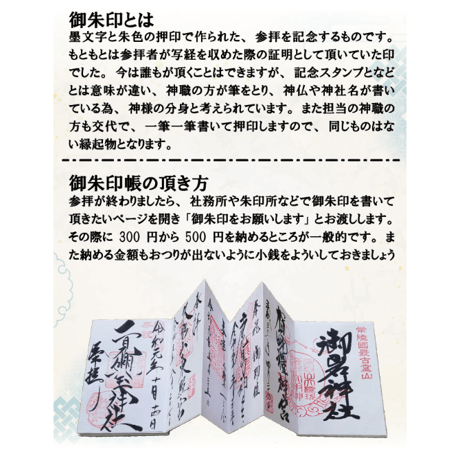 御朱印とは
墨文字と朱色の押印で作られた、参拝を記念するものです。
もともとは参拝者が写経を収めた際の証明として頂いていた印
でした。今は誰もが頂くことはできますが、記念スタンプとなど
とは意味が違い、神職の方が筆をとり、神仏や神社名が書い
ている為、神様の分身と考えられています。また担当の神職の
方も交代で、一筆一筆書いて押印しますので、同じものはな
い縁起物となります。
御朱印帳の頂き方
参拝が終わりましたら、社務所や朱印所などで御朱印を書いて
頂きたいページを開き「御朱印をお願いします」とお渡しします。
その際に 300 円から 500 円を納めるところが一般的です。ま
た納める金額もおつりが出ないように小銭をよういしておきましょう
常陸國最古霊山
御岩神社